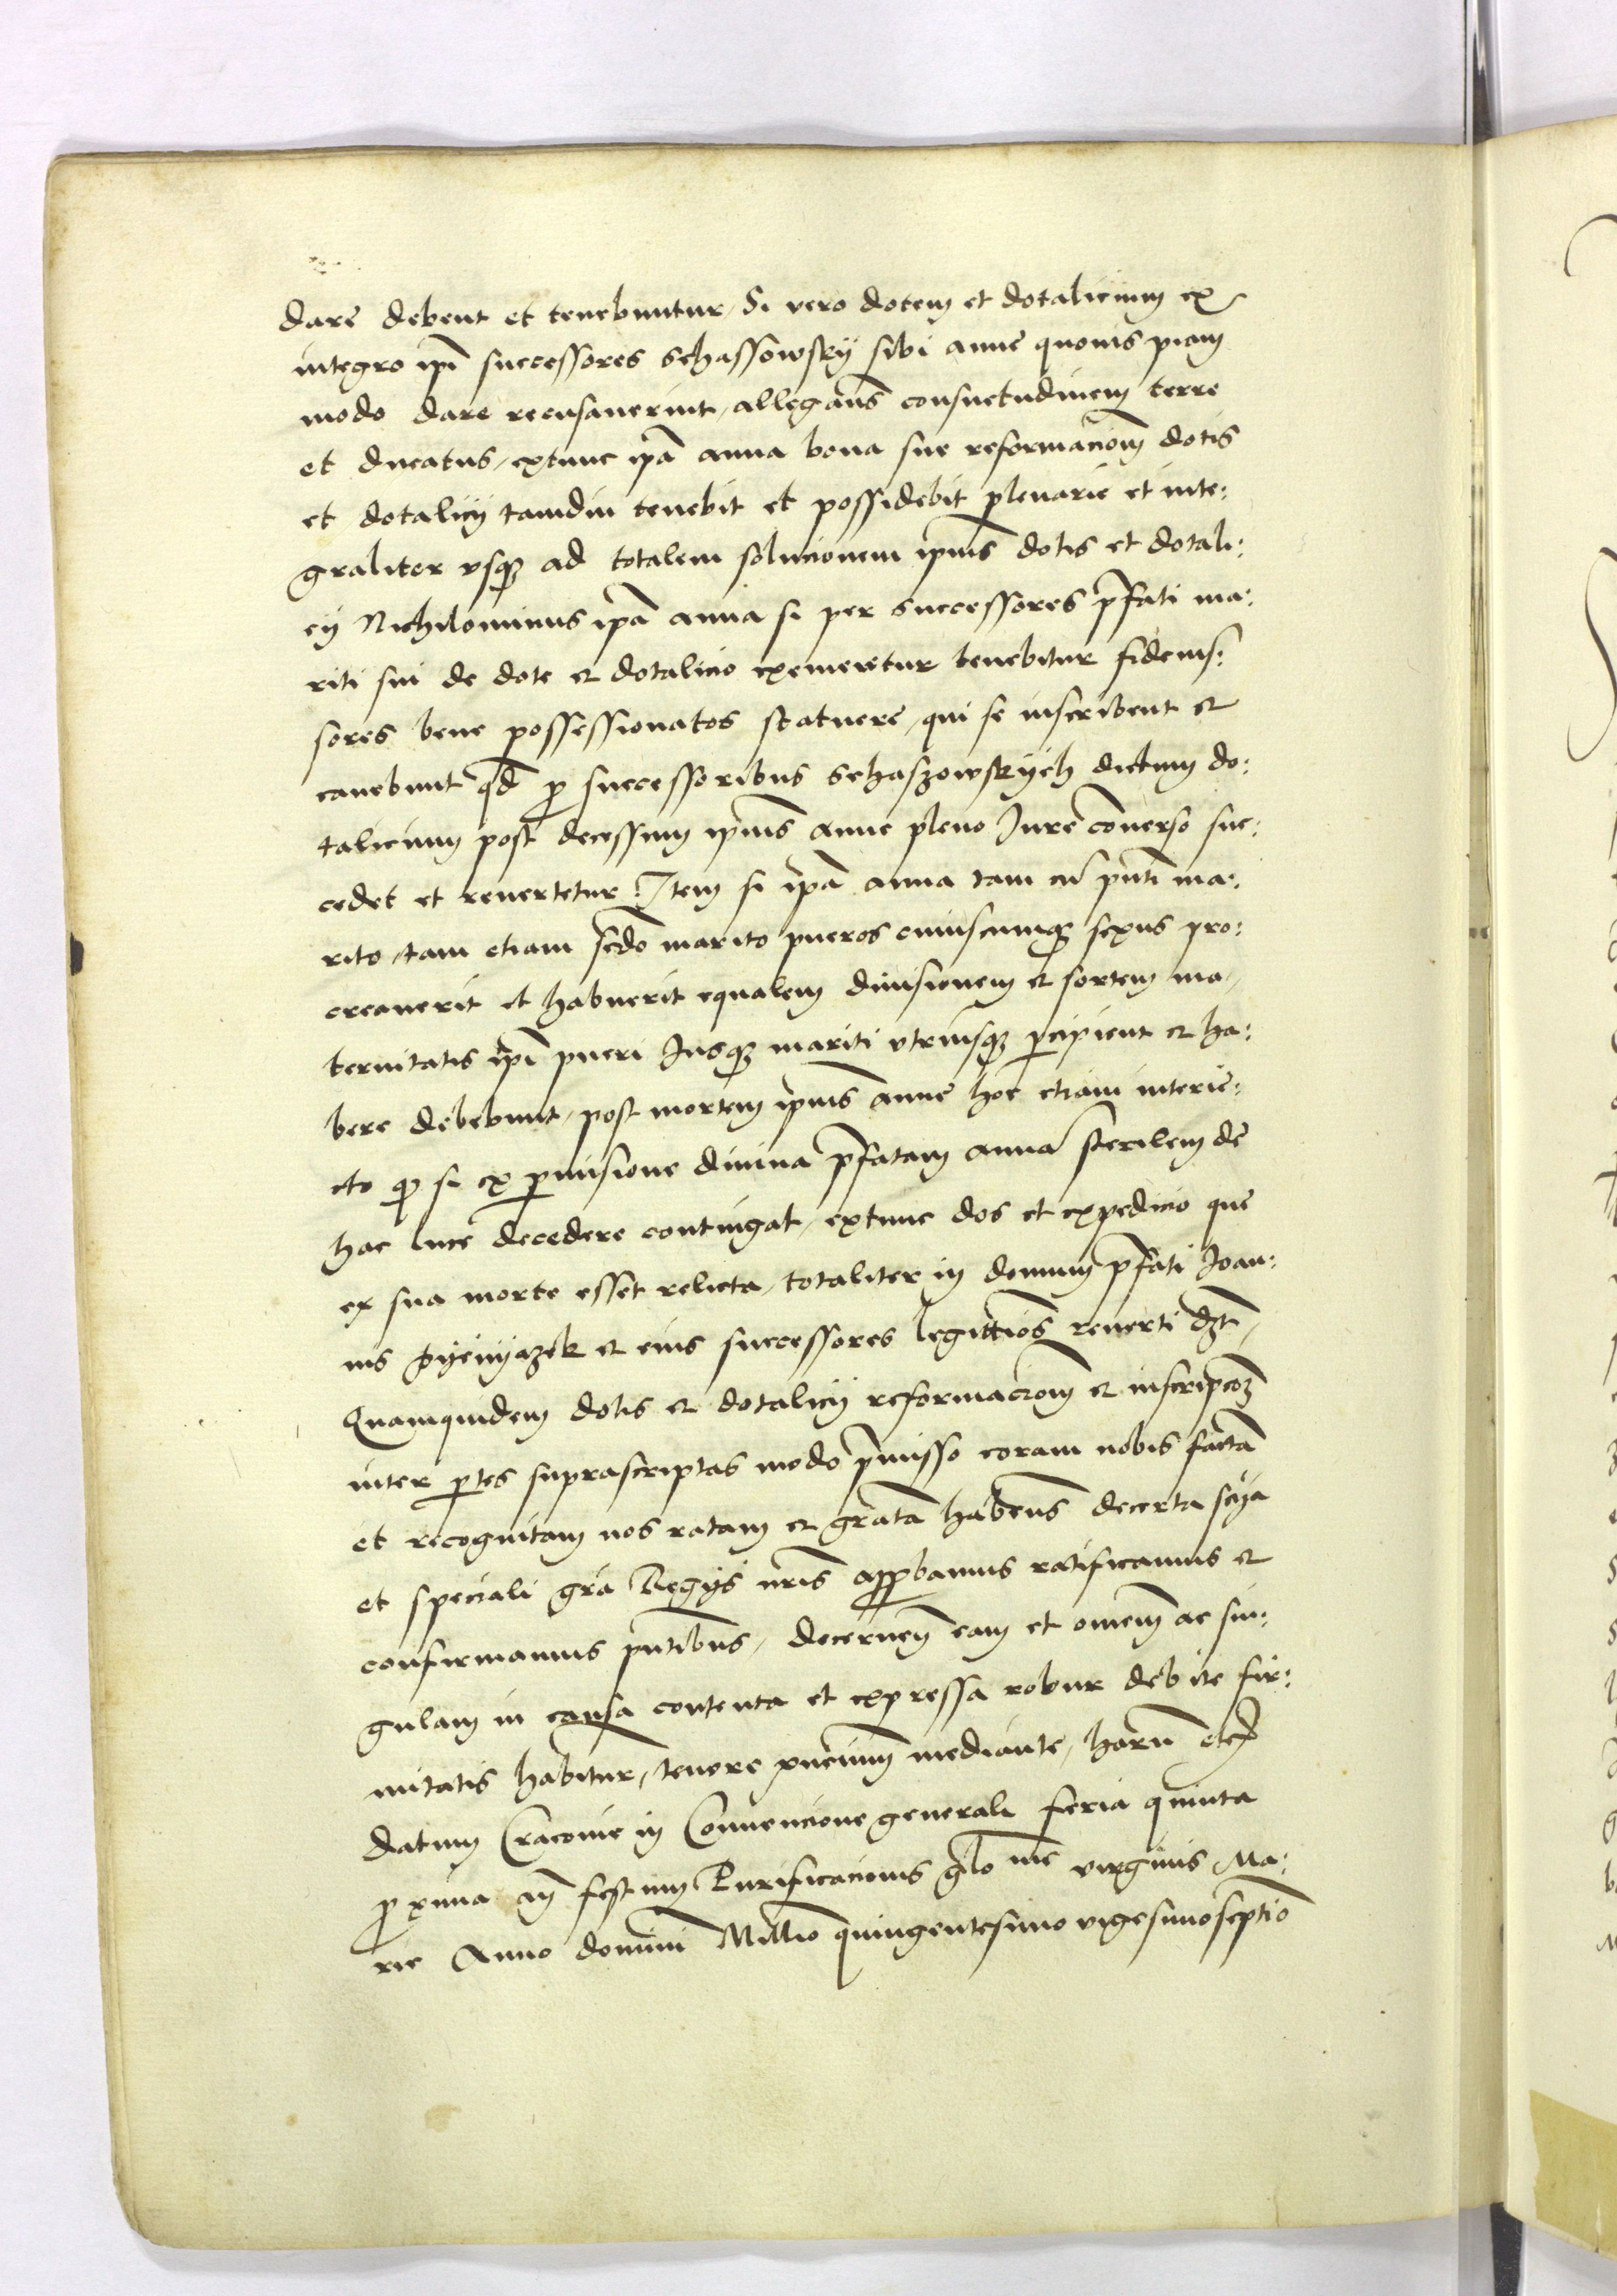 dare debent et tenebuntur, Si vero dotem et dotalicium ex
integro ip̄i successores Schassowskÿ sibi anne quouis piam
modo dare recusauerint, allegan̄s consuetudinem terre
et ducatus, extunc ip̄a anna bona sue reformac̄iom̄ dotis
et dotalicÿ tamdiu tenebit et possidebit plenarie et inte:
graliter vsq̨ ad totalem solucionem ip̄ius dotis et dotali:
cÿ Nichilominus ip̄a anna si per successores p̄fati ma:
riti sui de dote et dotalicio exemeretur tenebitur fideius:
sores bene possessionatos statuere, qui se inscribent et
cauebunt qd̄ ꝓ successoribus Schaszowskÿch dictum do:
talicium post decessum ip̄ius anne pleno Jure conuerso suc:
cedet et reuertetur Item si ip̄a anna tam cū p̄nti ma:
rito, tam etiam sc̄do marito pueros cuiuscumq̨ sexus pro:
creauerit et habuerit equalem diuisionem et sortem ma,
ternitatis ip̄i pueri Jusq̨ mariti vtriusq̨ ꝑcipient et ha:
bere debebunt, post mortem ip̄ius anne hoc etiam interie:
cto ꝙ si ex ꝑmisione diuina p̄fatam annā sterilem de
hac luce decedere contingat, extunc dos et expedicio que
ex sua morte esset relicta, totaliter in domum p̄fati Joan:
nis Pÿenÿazek et eius successores legittīos reuerti dʒt,
Quamquidem dotis et dotalicÿ reformac̄iom̄ et inscripc̄oʒ
inter ꝑtes suprascriptas modo p̄misso coram nobis factā
et recognitam nos ratam et gratā haben̄s decerta sc̄ÿa
et speciali gr̄a Regÿs nr̄is apꝓbamus ratificamus et
confirmamus p̄ntibus, decernen̄ eam et omnem̄ ac sin:
gulam in causa contenta et expressa robur debite fir:
mitatis habitur, tenore p̄ncium mediante, harū etc̄
datum Cracouie in Conuencione generali feria quinta
ꝓxima an̄ festum Purificacionis glo me virginis Ma:
rie Anno domini Millīo quingentesimo vigesimoseptīo